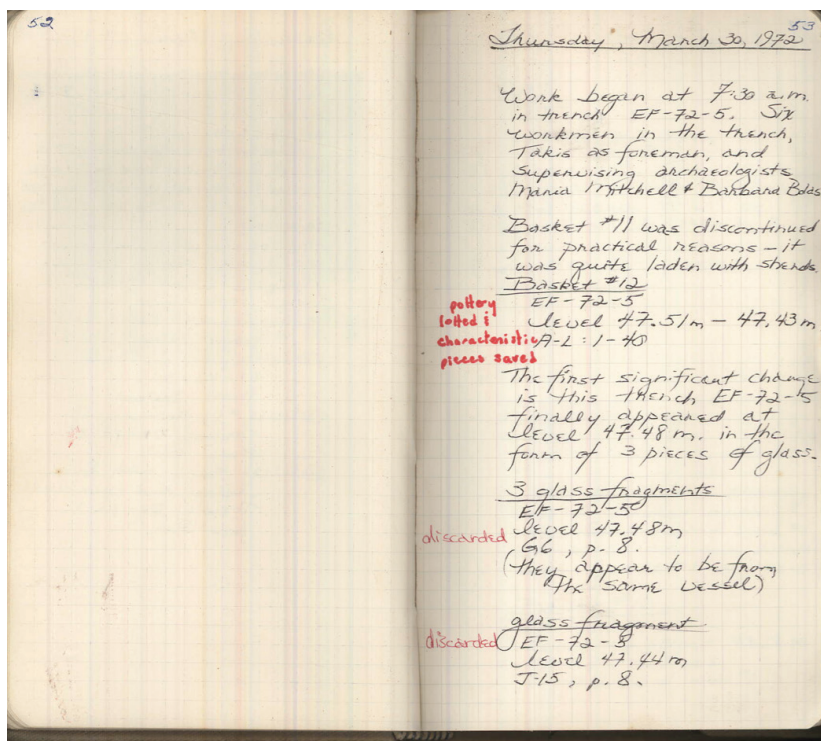 52
53
Thursday, March 30, 1972
Work began at 7:30 a.m.
in trench EF-72-5. Six
workmen in the trench,
Takis as foreman, and
supervising archaeologists
Maria Mitchell & Barbara Bolas
Basket #11 was discontinued
for practical reasons - it
was quite laden with sherds.
Basket #12
EF-72-5
level 47.51m - 47.43m
A-L : 1-40
pottery
lotted &
characteristic
pieces saved
The first significant change
is this trench EF-72-5
finally appeared at
level 47.48 m. in the
form of 3 pieces of glass.
3 glass fragments
EF-72-5
level 47.48m
G6, p. 8.
(they appear to be from
the same vessel)
discarded
glass fragment
EF-72-5
level 47.44m
J-15, p. 8.
discarded